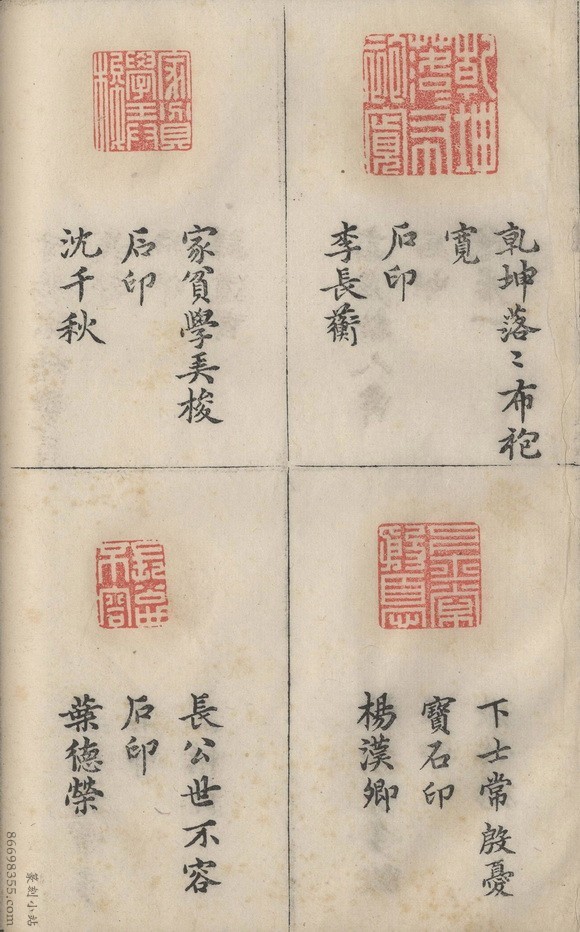 乾坤落〻布袍
寬
石印
李長蘅
家貧學弄梭
石印
沈千秋
下士常殷憂
寶石印
楊漢卿
長公世不容
石印
葉德榮
篆刻小站
86698355.com